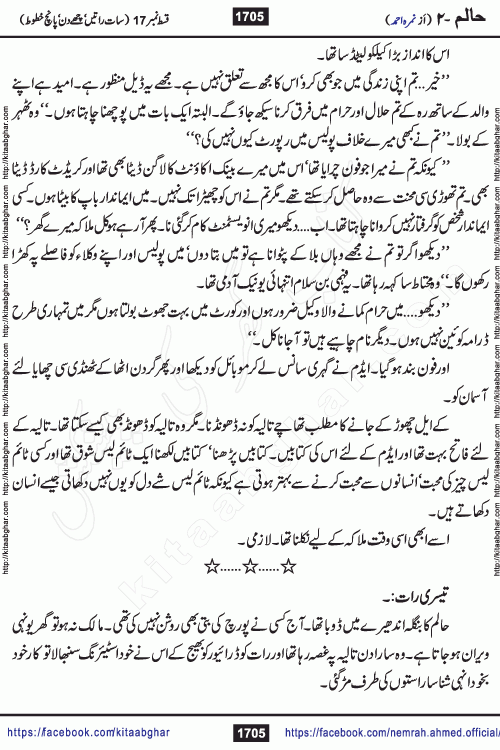 حالم -۲ (از نمرہ احمد) 1705 قسط نمبر 17 (سات راتیں‘ چھے دن‘ پانچ خطوط)
اس کا انداز بڑا کیلکولیٹڈ سا تھا۔
’’خیر... تم اپنی زندگی میں جو بھی کرو‘ اس کا مجھ سے تعلق نہیں ہے۔ مجھے یہ ڈیل منظور ہے۔ امید ہے اپنے
والد کے ساتھ رہ کے تم حلال اور حرام میں فرق کرنا سیکھ جاؤ گے۔ البتہ ایک بات میں پوچھنا چاہتا ہوں۔‘‘ وہ ٹھہر
کے بولا۔ ’’تم نے کبھی میرے خلاف پولیس میں رپورٹ کیوں نہیں کی؟‘‘
’’کیونکہ تم نے میرا جو فون چرایا تھا‘ اس میں میرے بینک اکاؤنٹ کا لاگن ڈیٹا بھی تھا اور کریڈٹ کارڈ ڈیٹا
بھی۔ تم تھوڑی سی محنت سے وہ حاصل کر سکتے تھے۔ مگر تم نے اس کو چھیڑا تک نہیں۔ میں ایماندار باپ کا بیٹا ہوں۔ کسی
ایماندار شخص کو گرفتار نہیں کروانا چاہتا تھا۔ اب.... دیکھو میری انویسٹمنٹ کام کر گئی نا۔ پھر آ رہے ہو کل ملاکہ میرے گھر؟‘‘
’’دیکھو اگر تو تم نے مجھے وہاں بلا کے پٹوانا ہے تو میں بتا دوں‘ میں پولیس اور اپنے وکلاء کو فاصلے پہ کھڑا
رکھوں گا۔‘‘ وہ محتاط سا کہہ رہا تھا۔ یہ فہمی بن سلام انتہائی یونیک آدمی تھا۔
’’دیکھو..... میں حرام کمانے والا وکیل ضرور ہوں اور کورٹ میں بہت جھوٹ بولتا ہوں مگر میں تمہاری طرح
ڈرامہ کوئین نہیں ہوں۔ دیگر نام چاہیے ہیں تو آ جانا کل۔‘‘
اور فون بند ہو گیا۔ ایڈم نے گہری سانس لے کر موبائل کو دیکھا اور پھر گردن اٹھا کے ٹھنڈی سی چھایا لئے
آسمان کو۔
کے ایل چھوڑ کے جانے کا مطلب تھا چے تالیہ کو نہ ڈھونڈنا۔ مگر وہ تالیہ کو ڈھونڈ بھی کیسے سکتا تھا۔ تالیہ کے
لئے فاتح بہت تھا اور ایڈم کے لئے اس کی کتابیں۔ کتابیں پڑھنا‘ کتابیں لکھنا ایک ٹائم لیس شوق تھا اور کسی ٹائم
لیس چیز کی محبت‘ انسانوں سے محبت کرنے سے بہتر ہوتی ہے کیونکہ ٹائم لیس شے دل کو یوں نہیں دکھاتی جیسے انسان
دکھاتے ہیں۔
اسے ابھی اسی وقت ملاکہ کے لیے نکلنا تھا۔ لازمی۔
☆......☆......☆
تیسری رات:۔
حالم کا بنگلہ اندھیرے میں ڈوبا تھا۔ آج کسی نے پورچ کی بتی بھی روشن نہیں کی تھی۔ مالک نہ ہو تو گھر یونہی
ویران ہو جاتا ہے۔ وہ سارا دن تالیہ پہ غصہ رہا تھا اور رات کو ڈرائیور کو بھیج کے اس نے خود اسٹیئرنگ سنبھالا تو کار خود
بخود انہی شناسا راستوں کی طرف مڑ گئی۔
https://facebook.com/kitaabghar 1705 https://facebook.com/nemrah.ahmed.official/
http://kitaabghar.com
kitaabghar.com